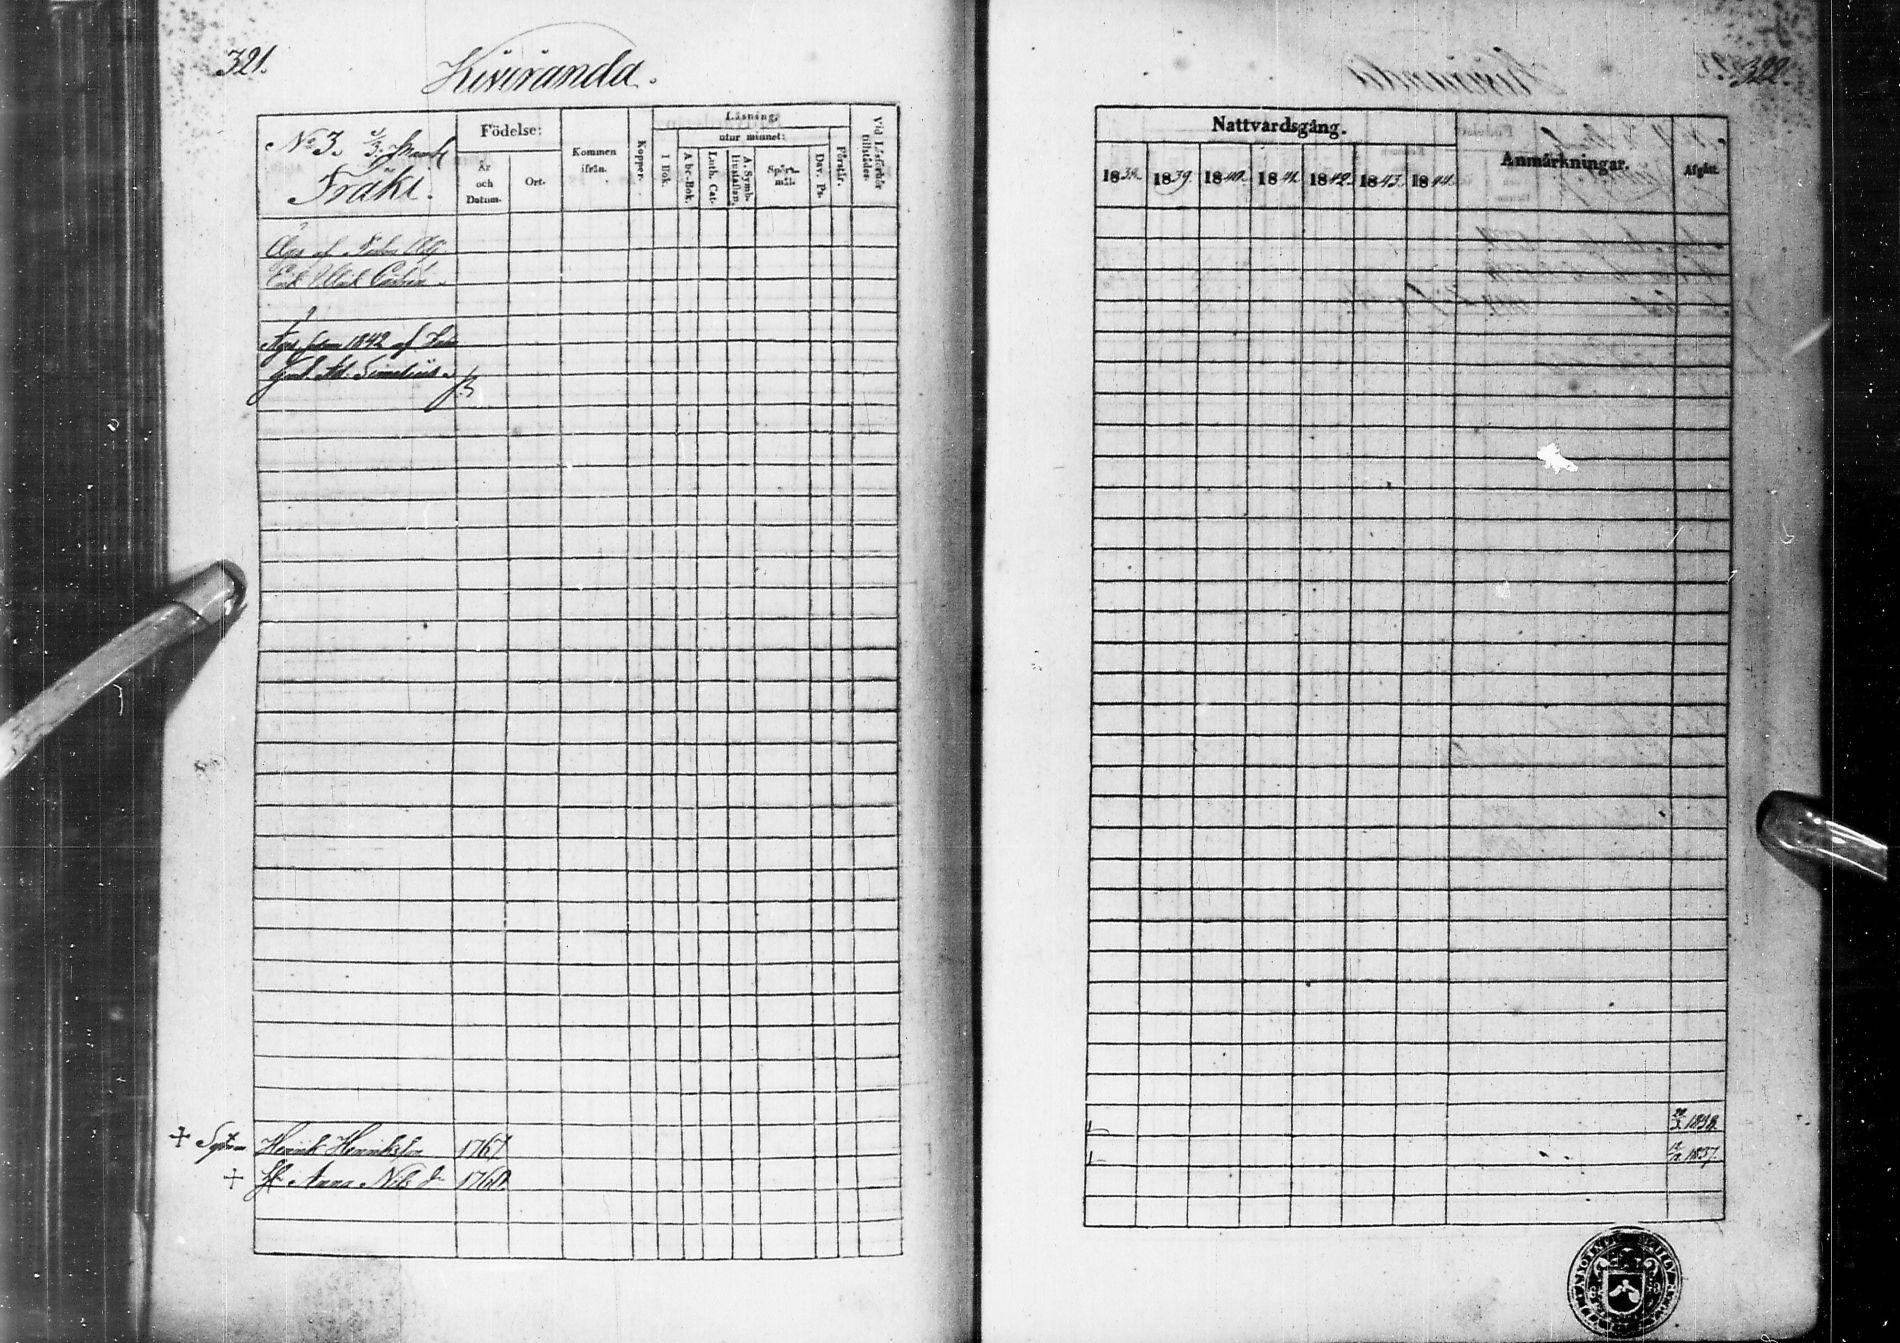 321.
Kiviranda.
No 3. 1/3 Mant
Träki.
Födelse:
År och Datum.
Ort.
Kommen ifrån.
Koppor.
Läsning,
utur minnet:
I Bok.
Abc-Bok.
Luth. Cat.
A. Symb. Hustaflan.
Spörs-mål.
Dav. Ps.
Förstår.
Vid Läsförhör tillstädes.
Äges af
Erik Ulrik
Äges sedan 1842 af
Gust. Ad.
+ Henrik Henriksson 1767.
+ H. Anna Nils d. 1760.
322.
Nattvardsgång.
1838. 1839. 1840. 1841. 1842. 1843. 1844.
Anmärkningar.
Afgått.
1838.
1837.